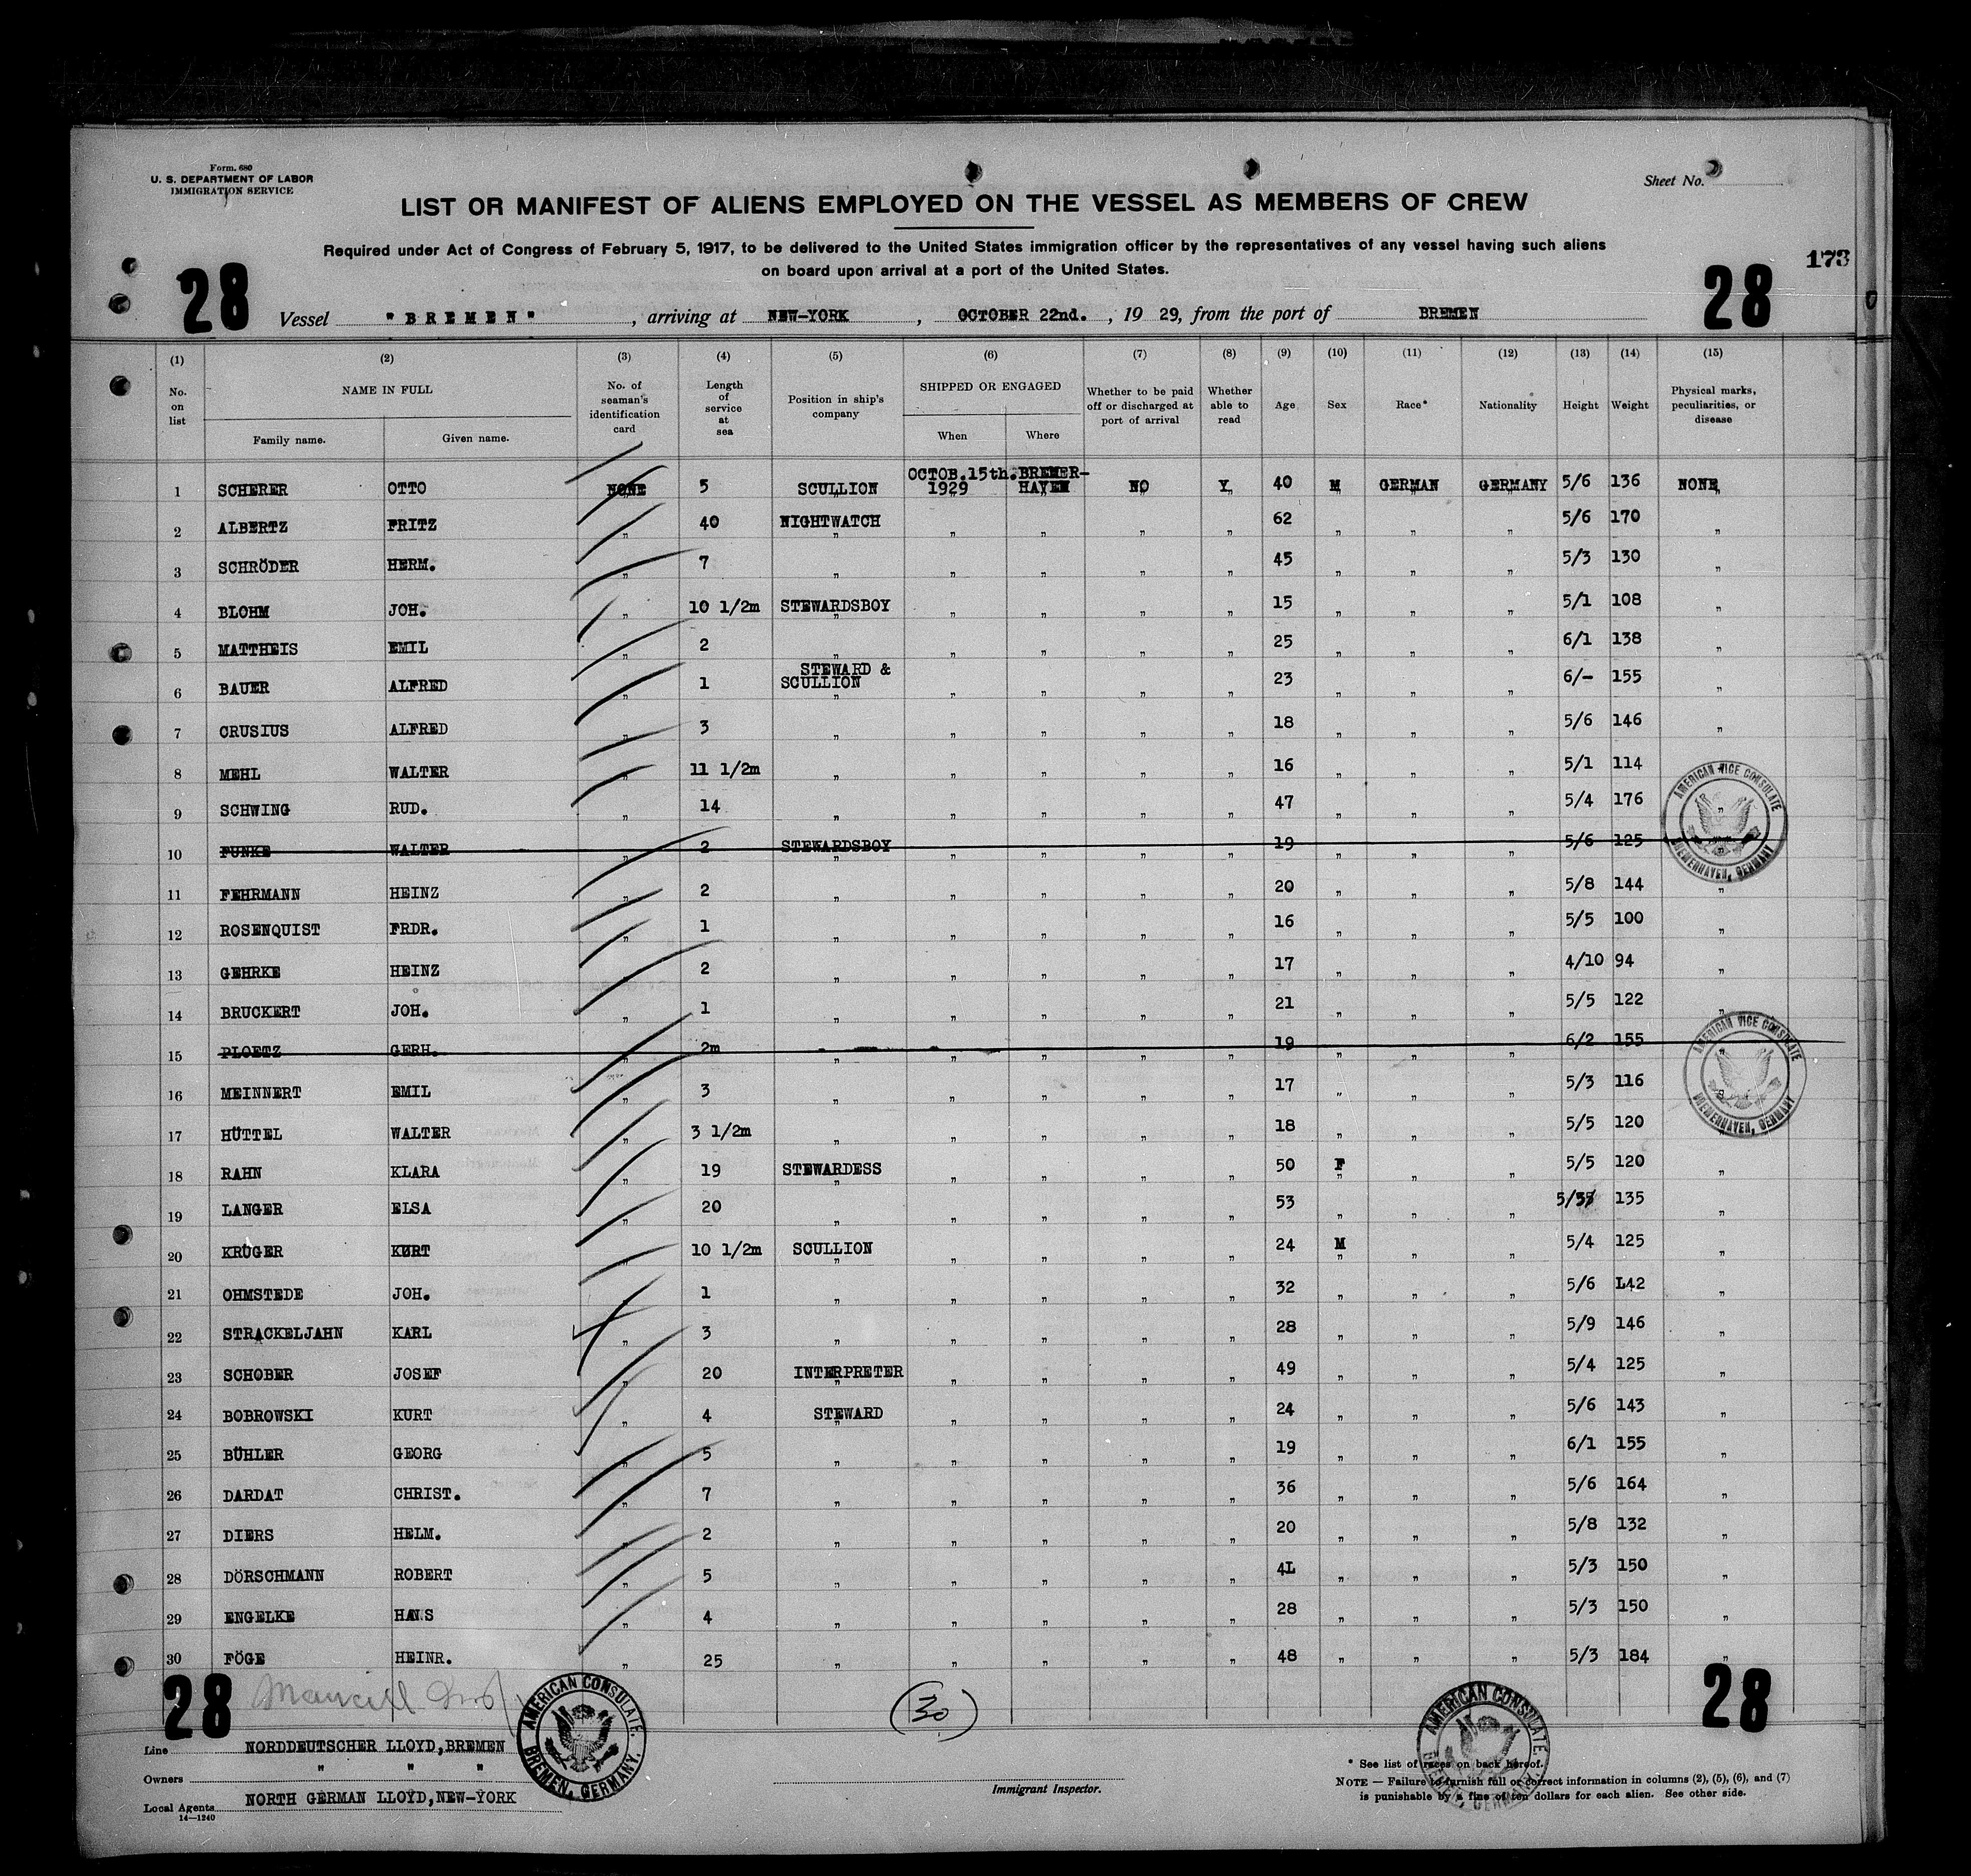 Form. 680
U. S. DEPARTMENT OF LABOR
IMMIGRATION SERVICE
Sheet No.
LIST OR MANIFEST OF ALIENS EMPLOYED ON THE VESSEL AS MEMBERS OF CREW
Required under Act of Congress of February 5, 1917, to be delivered to the United States immigration officer by the representatives of any vessel having such aliens
on board upon arrival at a port of the United States.
173
28 28
Vessel "BREMEN", arriving at NEW-YORK, OCTOBER 22nd., 1929, from the port of BREMEN
(1) (2) (3) (4) (5) (6) (7) (8) (9) (10) (11) (12) (13) (14) (15)
No. on list NAME IN FULL Family name. Given name. No. of seaman's identification card Length of service at sea Position in ship's company SHIPPED OR ENGAGED When Where Whether to be paid off or discharged at port of arrival Whether able to read Age Sex Race* Nationality Height Weight Physical marks, peculiarities, or disease
1 SCHERER OTTO NONE 5 SCULLION OCTOB.15th. 1929 BREMER-HAVEN NO Y 40 M GERMAN GERMANY 5/6 136 NONE
2 ALBERTZ FRITZ " 40 NIGHTWATCH " " " " " 62 " " " 5/6 170 "
3 SCHRÖDER HERM. " 7 " " " " " 45 " " " 5/3 130 "
4 BLOHM JOH. " 10 1/2m STEWARDSBOY " " " " " 15 " " " 5/1 108 "
5 MATTHEIS EMIL " 2 " " " " " 25 " " " 6/1 138 "
6 BAUER ALFRED " 1 STEWARD & SCULLION " " " " 23 " " " 6/- 155 "
7 CRUSIUS ALFRED " 3 " " " " " 18 " " " 5/6 146 "
8 MEHL WALTER " 11 1/2m " " " " " 16 " " " 5/1 114
9 SCHWING RUD. " 14 " " " " " 47 " " " 5/4 176 "
10 FUNKE WALTER " 2 STEWARDSBOY " " " " " 19 " " " 5/6 125
11 FEHRMANN HEINZ " 2 " " " " " 20 " " " 5/8 144 "
12 ROSENQUIST FRDR. " 1 " " " " " 16 " " " 5/5 100 "
13 GEHRKE HEINZ " 2 " " " " " 17 " " " 4/10 94 "
14 BRUCKERT JOH. " 1 " " " " " 21 " " " 5/5 122 "
15 PLOETZ GERH. " 2m " " " " " 19 " " " 6/2 155 "
16 MEINNERT EMIL " 3 " " " " " 17 " " " 5/3 116 "
17 HÜTTEL WALTER " 3 1/2m " " " " " 18 " " " 5/5 120 "
18 RAHN KLARA " 19 STEWARDESS " " " " " 50 F " " " 5/5 120 "
19 LANGER ELSA " 20 " " " " " 53 " " " 135 "
20 KRÜGER KURT " 10 1/2m SCULLION " " " " " 24 M " " " 5/4 125 "
21 OHMSTEDE JOH. " 1 " " " " " 32 " " " 5/6 L42 "
22 STRACKELJAHN KARL " 3 " " " " " 28 " " " 5/9 146 "
23 SCHOBER JOSEF " 20 INTERPRETER " " " " " 49 " " " 5/4 125 "
24 BOBROWSKI KURT " 4 STEWARD " " " " " 24 " " " 5/6 143 "
25 BÜHLER GEORG " 5 " " " " " 19 " " " 6/1 155 "
26 DARDAT CHRIST. " 7 " " " " " 36 " " " 5/6 164 "
27 DIERS HELM. " 2 " " " " " 20 " " " 5/8 132 "
28 DÖRSCHMANN ROBERT " 5 " " " " " 4L " " " 5/3 150 "
29 ENGELKE HANS " 4 " " " " " 28 " " " 5/3 150 "
30 FÖGE HEINR. " 25 " " " " " 48 " " " 5/3 184 "
AMERICAN VICE CONSULATE
BREMERHAVEN, GERMANY
AMERICAN VICE CONSULATE
BREMERHAVEN, GERMANY
28 (30) 28
AMERICAN CONSULATE.
BREMEN, GERMANY.
AMERICAN CONSULATE.
BREMEN, GERMANY.
Line NORDDEUTSCHER LLOYD,BREMEN
Owners " " "
Local Agents NORTH GERMAN LLOYD,NEW-YORK
14—1240
Immigrant Inspector.
* See list of races on back hereof.
NOTE — Failure to furnish full or correct information in columns (2), (5), (6), and (7)
is punishable by a fine of ten dollars for each alien. See other side.